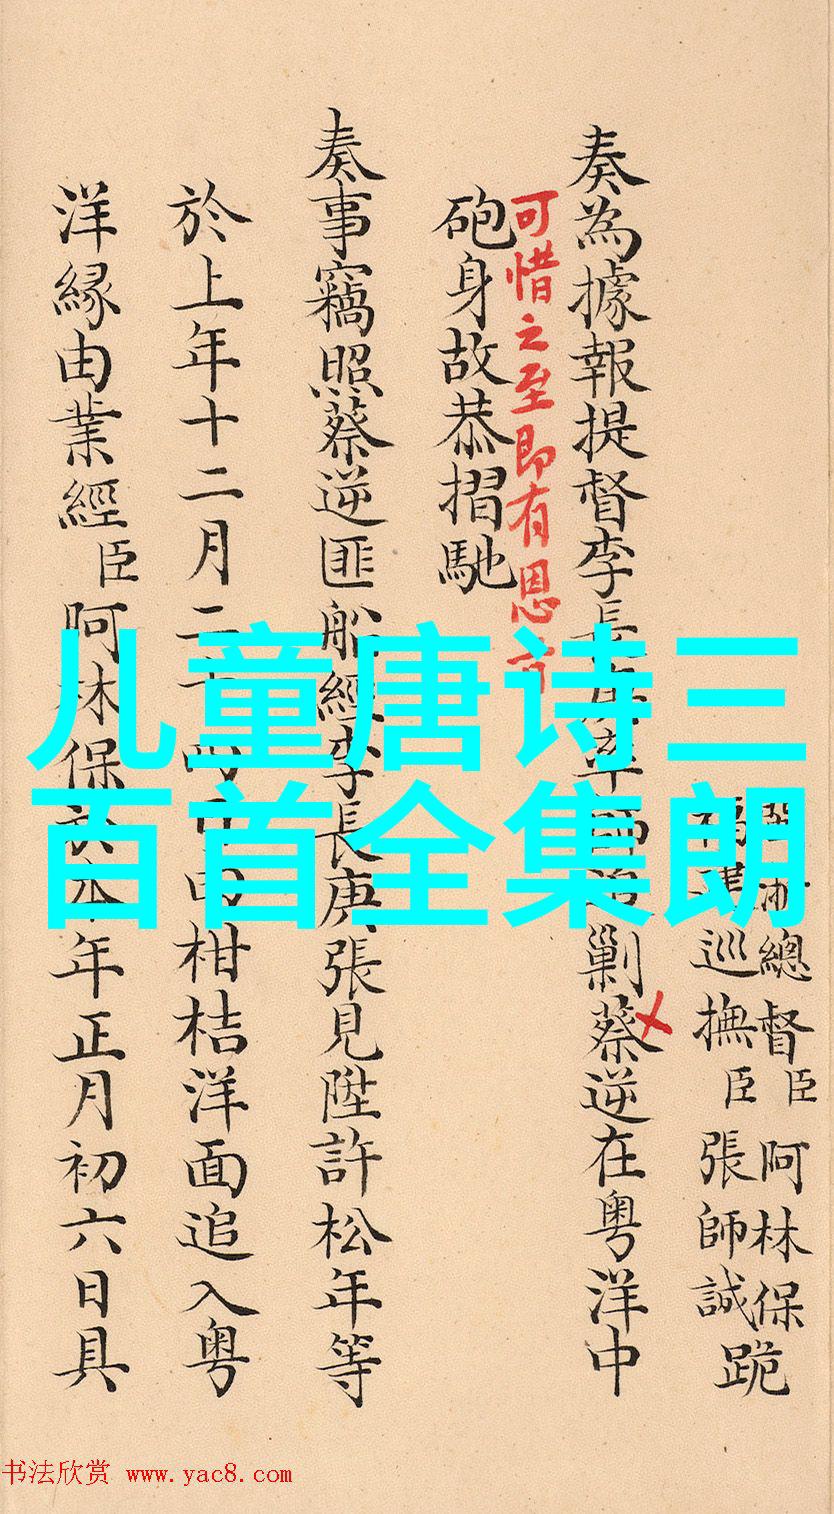 總督臣阿林保
巡撫臣張師誠跪
奏為據報提督李長剿蔡逆在粤洋中
可惜之至即有恩
砲身故恭摺馳
奏事竊照蔡逆匪船經李長庚張見陞許松年等
於上年十二月二柑桔洋面追入粤
洋緣由業經臣阿林保年正月初六日具
儿童唐诗三
百首全集朗
书法欣赏 www.yac8.com